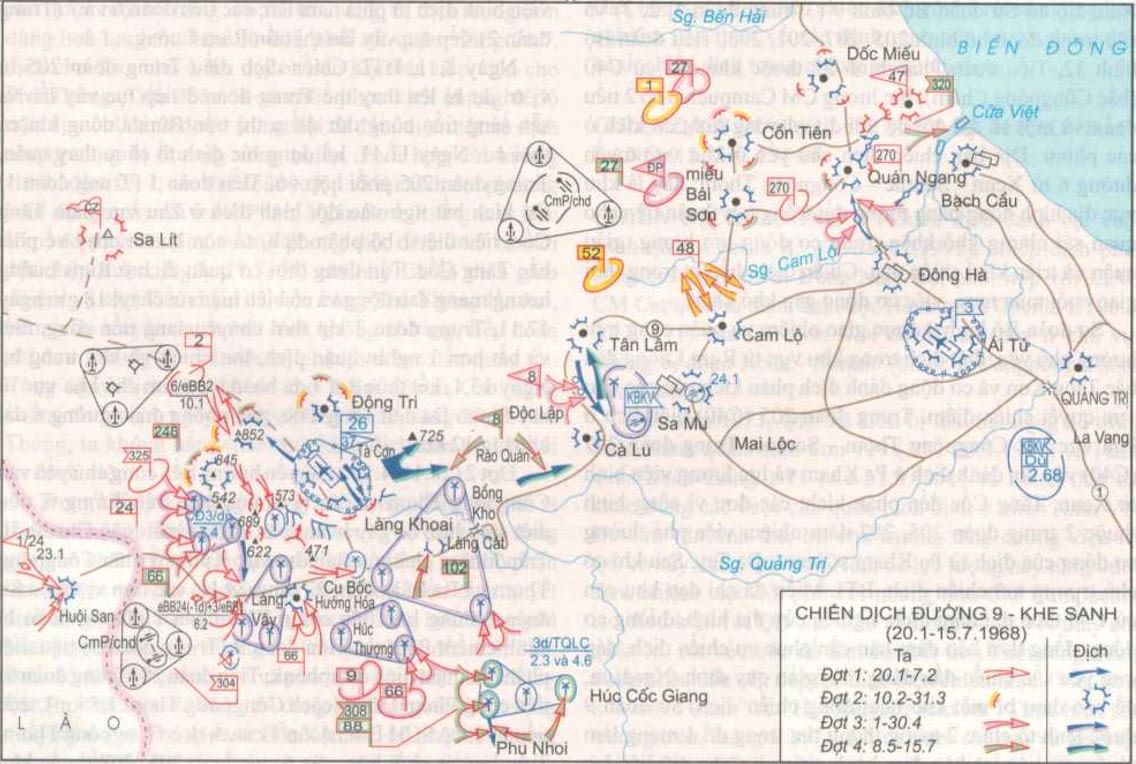 Sg. Bến Hải
BIỂN ĐÔNG
Dốc Miếu
27
1
47
320
Cửa Việt
Cồn Tiên
270
27
ĐP
miếu
Bái
Sơn
270
Quán Ngang
Bạch Câu
CmP/chd
C2
Sa Lít
52
48
Sg. Cam Lộ
Đông Hà
37
Ái Tử
9
Tân Lâm
Cam Lộ
QUẢNG TRỊ
8
Độc Lập
KBKV
24.1
Sa Mu
Mai Lộc
La Vang
2
(6/eBB2)
10.1
Động Tri
24B
852
26
37
Tà Cơn
725
8
Rào Quán
Cà Lu
KBKV
DƯ
2.68
1
325
845
24
542
573
Đ3/dù
7.4
689
Làng Khoai
Bống
Kho
Làng Cát
1/24
23.1
622
471
102
Sg. Quảng Trị
66
Huội San
eBB24(-Td)+3/eBB1
6.2
Làng
Vây
Cu Bốc
Hướng Hóa
CmP/chd
Húc
Thượng
66
304
9
66
308
88
3d/TQLC
2.3 và 4.6
Húc Cốc Giang
Phu Nhoi
LÀO
CHIẾN DỊCH ĐƯỜNG 9 - KHE SANH
(20.1-15.7.1968)
Ta
Địch
Đợt 1: 20.1-7.2
Đợt 2: 10.2-31.3
Đợt 3: 1-30.4
Đợt 4: 8.5-15.7